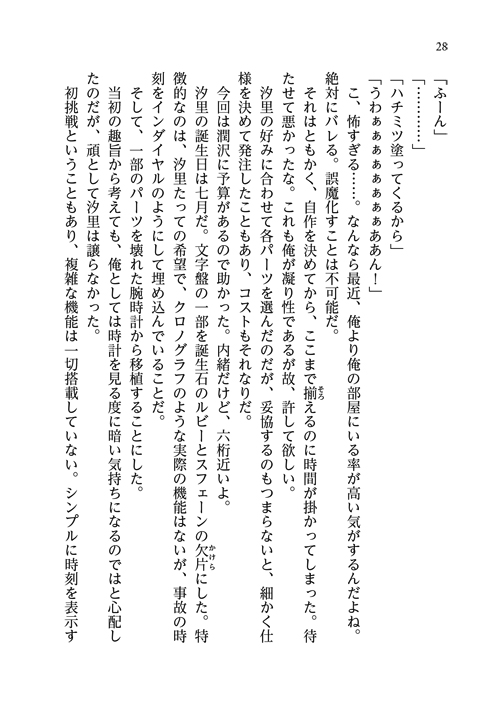 28
「ふーん」
「…………」
「ハチミツ塗ってくるから」
「うわぁぁぁぁぁぁぁぁああん！」
こ、怖すぎる……。なんなら最近、俺より俺の部屋にいる率が高い気がするんだよね。
絶対にバレる。誤魔化すことは不可能だ。
それはともかく、自作を決めてから、ここまで揃えるのに時間が掛かってしまった。待
たせて悪かったな。これも俺が凝り性であるが故、許して欲しい。
汐里の好みに合わせて各パーツを選んだのだが、妥協するのもつまらないと、細かく仕
様を決めて発注したこともあり、コストもそれなりだ。
今回は潤沢に予算があるので助かった。内緒だけど、六桁近いよ。
汐里の誕生日は七月だ。文字盤の一部を誕生石のルビーとスフェーンの欠片にした。特
徴的なのは、汐里たっての希望で、クロノグラフのような実際の機能はないが、事故の時
刻をインダイヤルのようにして埋め込んでいることだ。
そして、一部のパーツを壊れた腕時計から移植することにした。
当初の趣旨から考えても、俺としては時計を見る度に暗い気持ちになるのではと心配し
たのだが、頑として汐里は譲らなかった。
初挑戦ということもあり、複雑な機能は一切搭載していない。シンプルに時刻を表示す